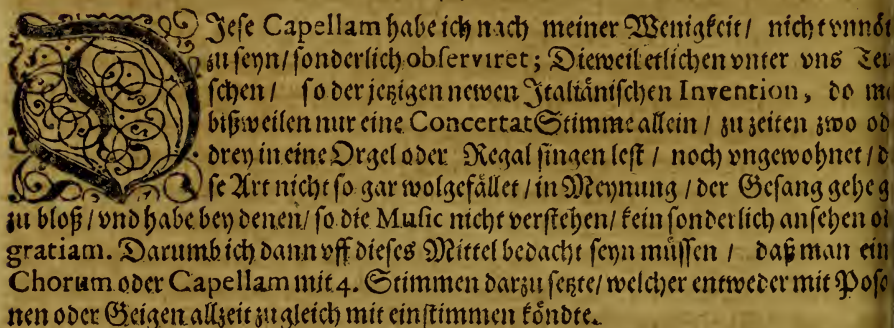 DIese Capellam habe ich nach meiner Wenigkeit / nicht vnnö
zu seyn / sonderlich observiret; Dieweil etlichen vnter vns Teu
schen / so der jetzigen newen Italiänischen Invention, do m
bißweilen nur eine Concertat Stimme allein / zu zeiten zwo od
drey in eine Orgel oder Regal singen lest / noch vngewohnet / d
se Art nicht so gar wolgefället / in Meynung / der Gesang gehe g
zu bloß / vnd habe bey denen / so die Music nicht verstehen / kein sonderlich ansehen o
gratiam. Darumb ich dann vff dieses Mittel bedacht seyn müssen / daß man ein
Chorum oder Capellam mit 4. Stimmen darzu setzte / welcher entweder mit Poso
nen oder Geigen allzeit zugleich mit einstimmen köndte.